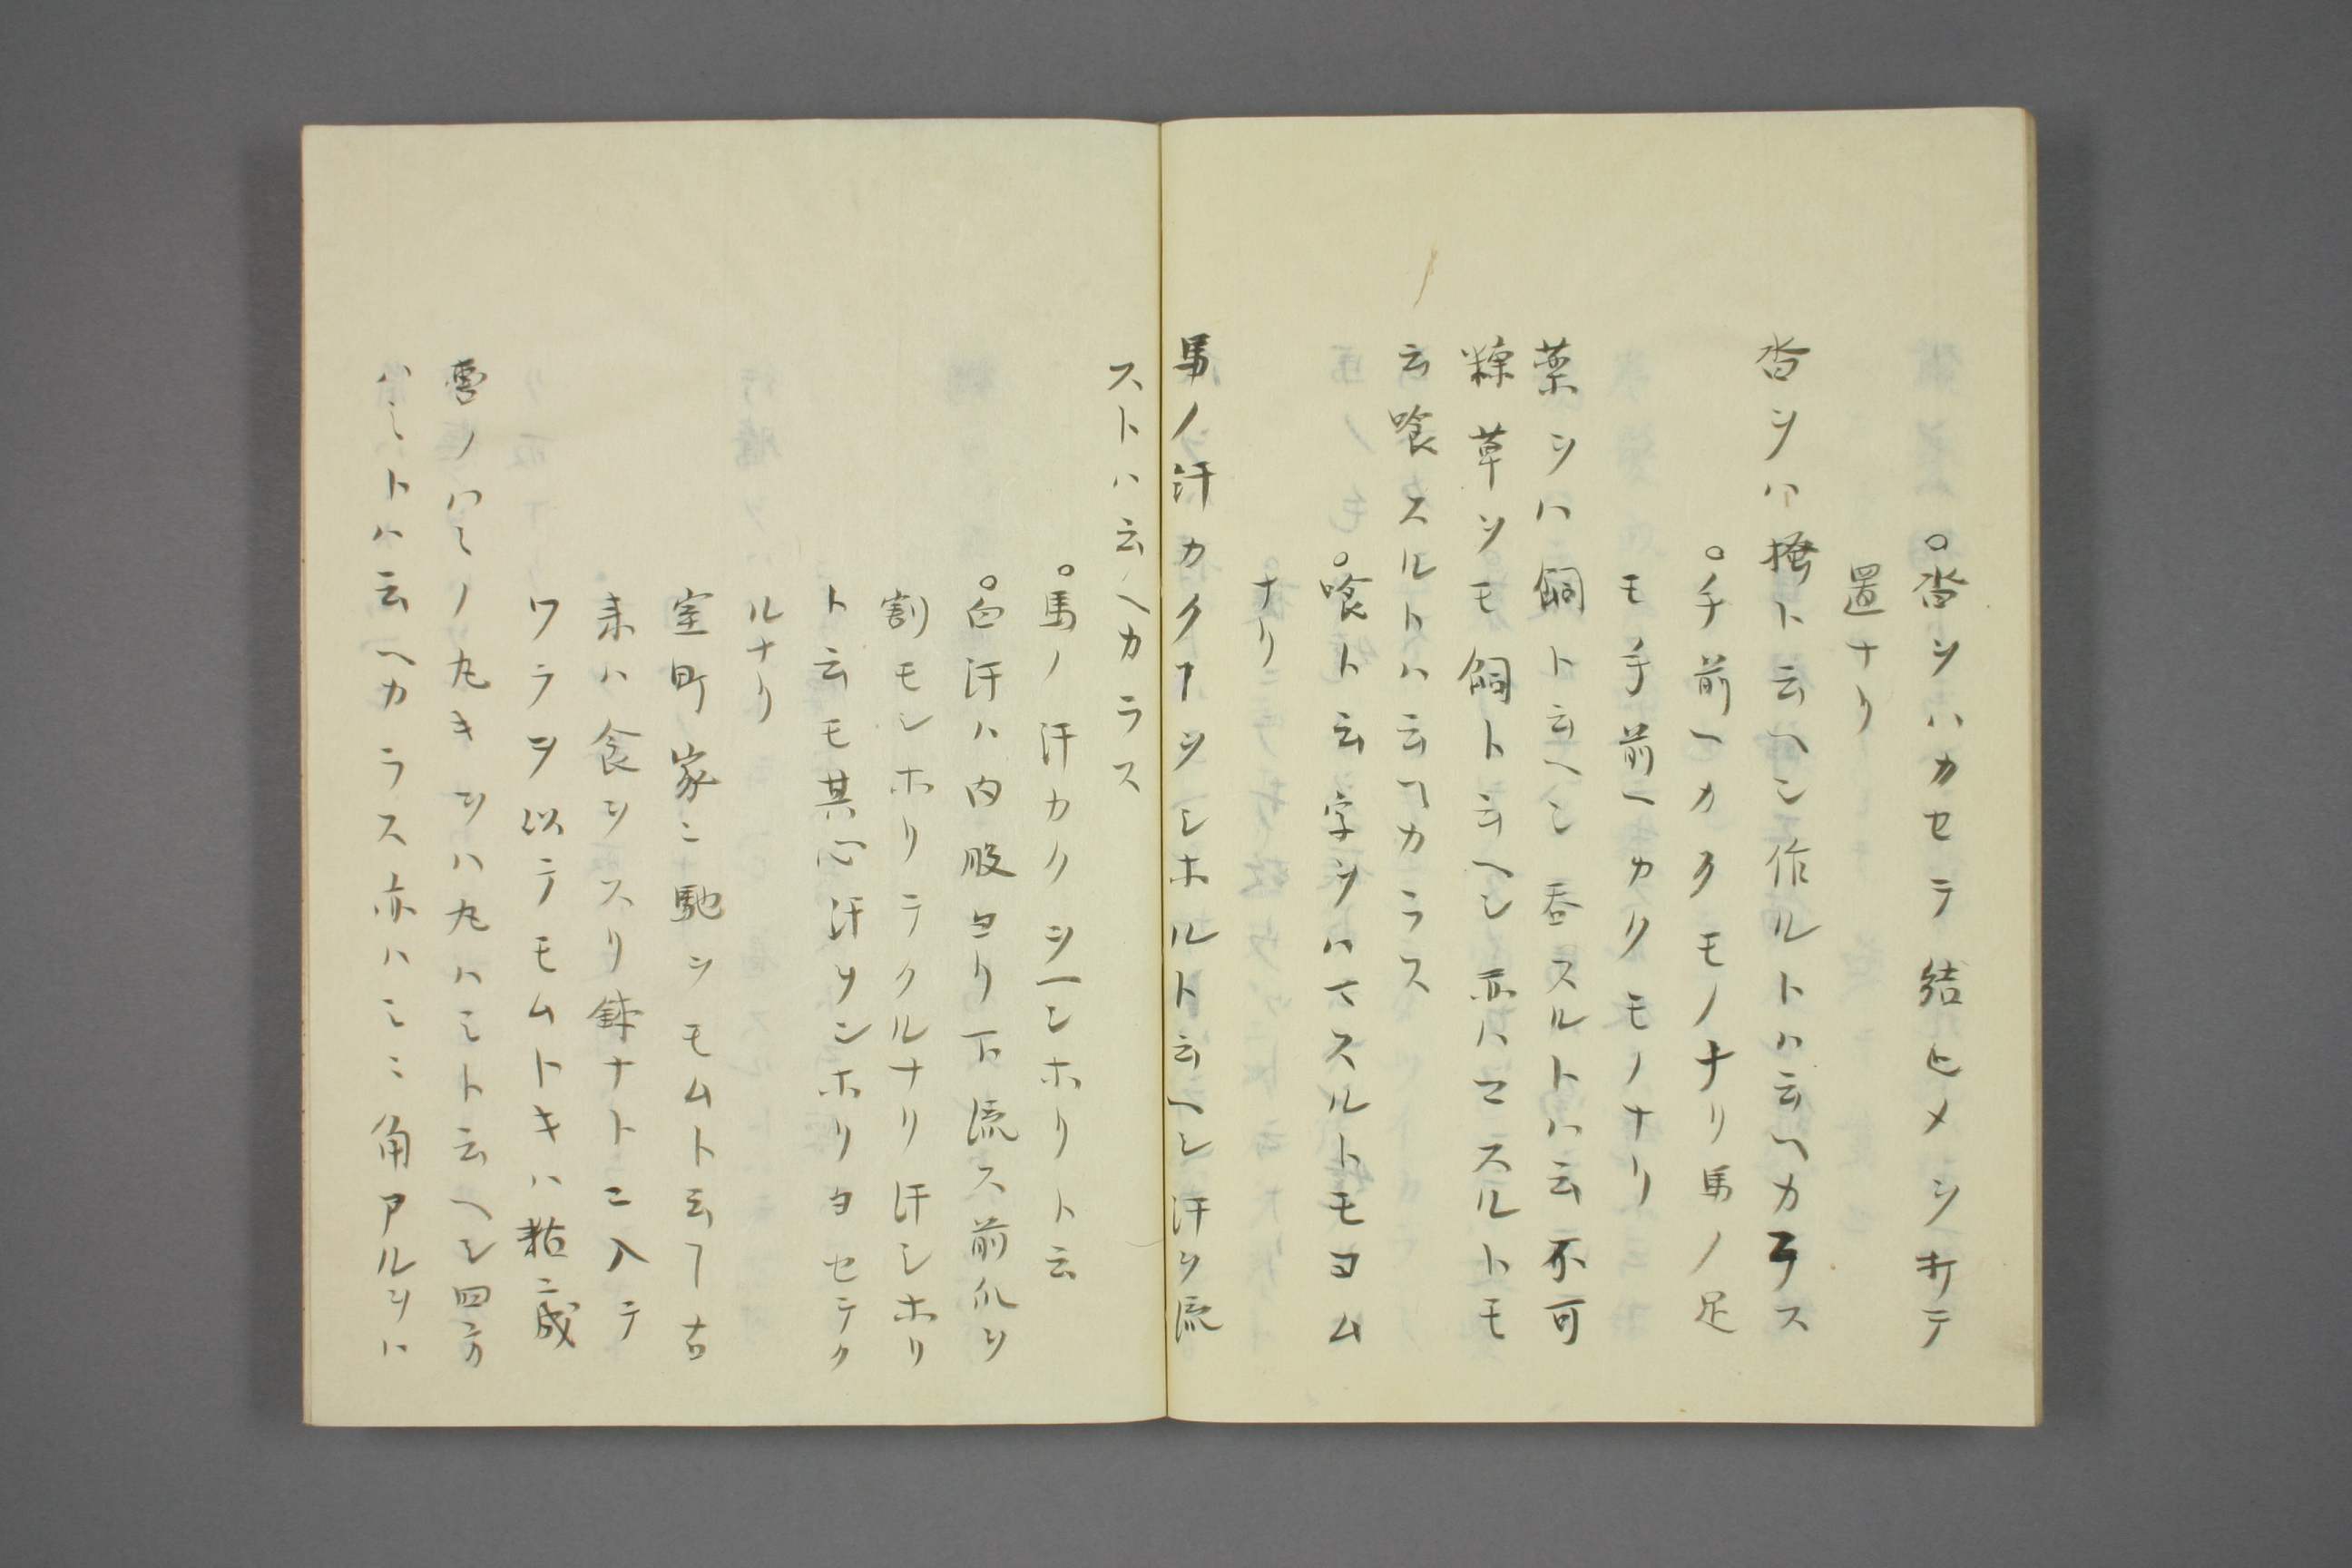 ○沓ヲハカセテ結ヒメヲキテ
置ナリ
沓ヲハ掻ト云ヘシ作ルトハ云ヘカラス
○手前ヘカクモノナリ馬ノ足
モ手前ヘカクモノナリ
薬ヲハ飼ト云ヘシ呑スルトハ云不可
糠草ヲモ飼ト云ヘシ亦ハマスルトモ
云喰スルトハ云ヘカラス
○喰ト云字ヲハマスルトモヨム
ナリ
馬ノ汗カクヿヲシホルト云ヘシ汗ヲ流
ストハ云ヘカラス
○馬ノ汗カクヲヿシホリト云
○白汗ハ内股ヨリ下流ス前爪ヲ
割モシホリテクルナリ汗シホリ
ト云モ其心汗ヲシホリヨセテク
ルナリ
室町家ニ馳ヲモムト云ヿ古
来ハ食ヲスリ鉢ナトニ入テ
ワラヲ以テモムトキハ粘ニ成
ノハミノ丸キヲハ丸ハミト云ヘシ四方
ハミトハ云ヘカラス亦ハミニ角アルヲハ